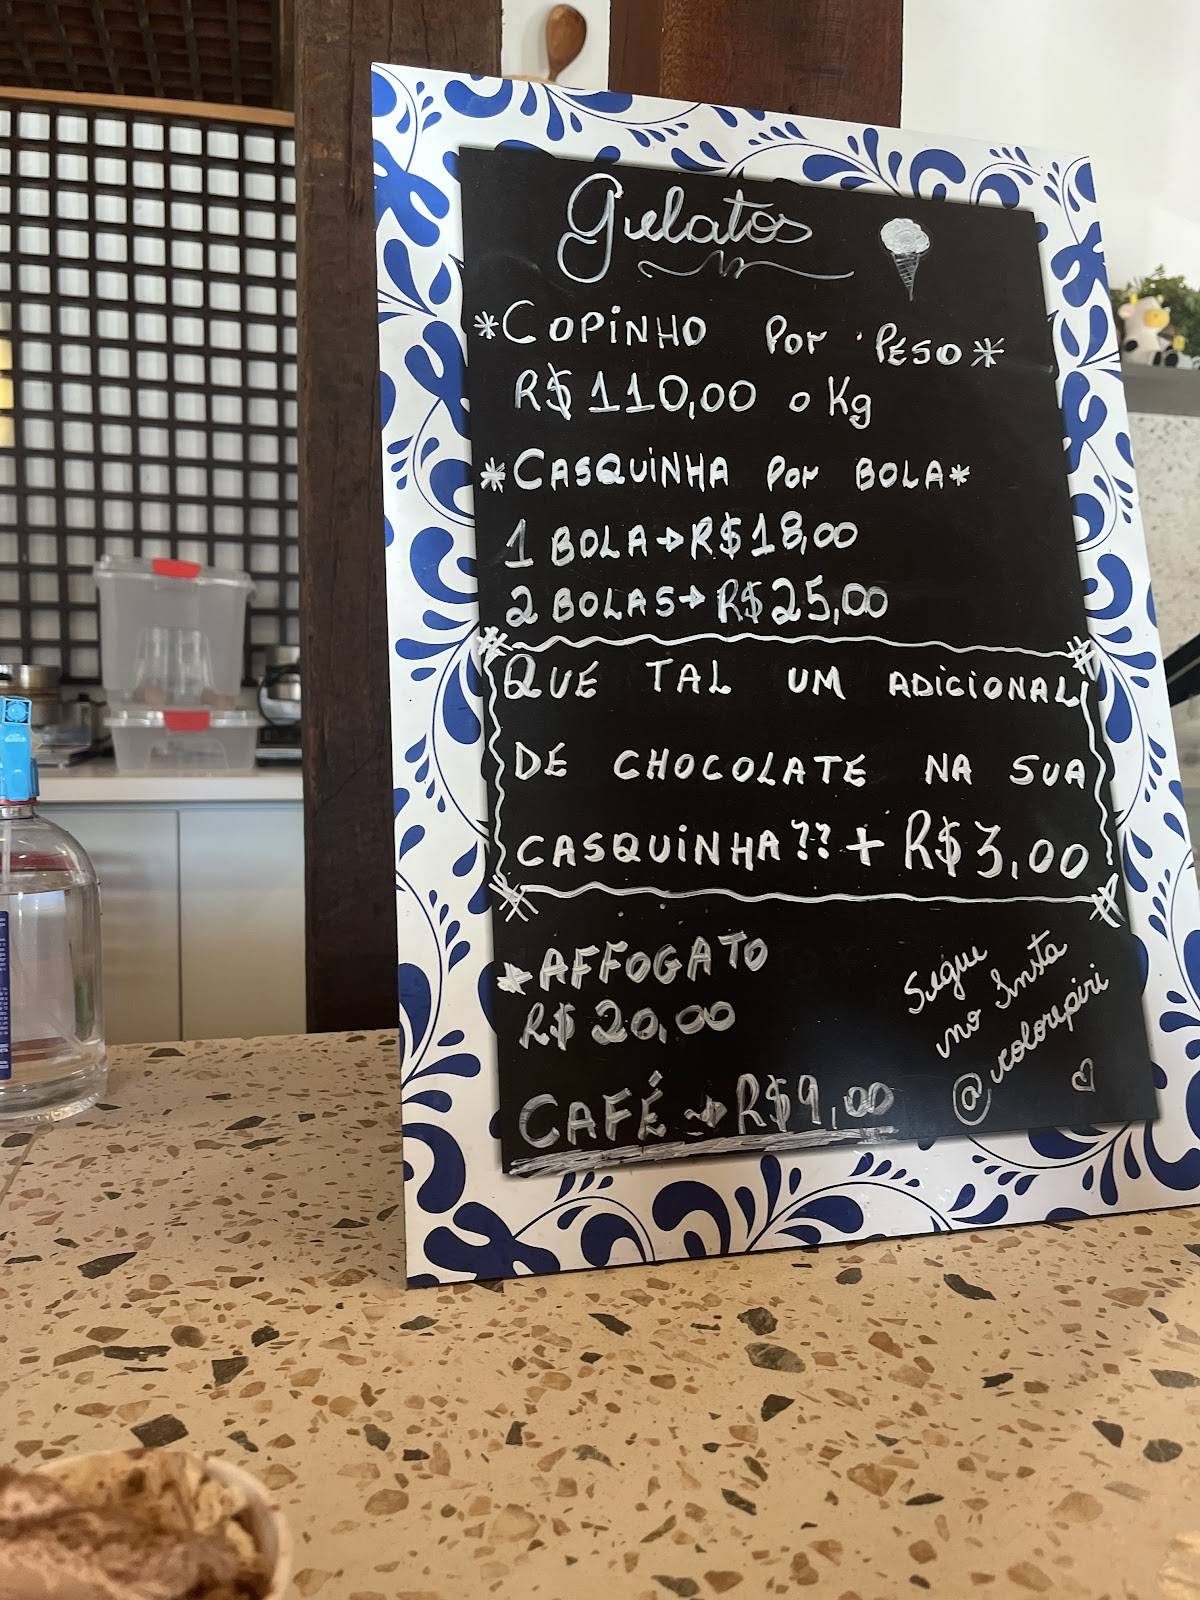 Gelatos
*COPINHO POR PESO*
R$110,00 o Kg
*CASQUINHA POR BOLA*
1 BOLA→R$18,00
2 BOLAS→R$25,00
QUE TAL UM ADICIONAL
DE CHOCOLATE NA SUA
CASQUINHA?? + R$3,00
*AFFOGATO
R$20,00
CAFÉ → R$9,00
Segue
no Insta